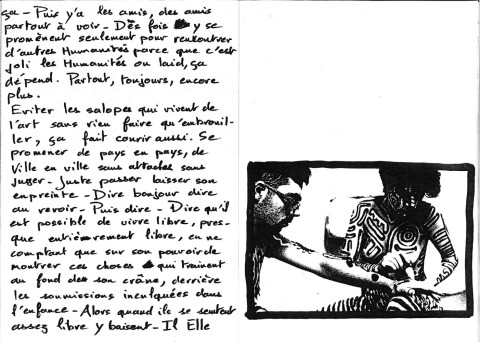 ça - Puis y'a les amis, des amis
partout à voir - Dès fois y se
promènent seulement pour rencontrer
d'autres Humanités parce que c'est
joli les Humanités ou laid, ça
dépend. Partout, toujours, encore
plus.
Eviter les salopes qui vivent de
l'art sans rien faire qu'embrouil-
ler, ça fait courir aussi. Se
promener de pays en pays, de
Ville en ville sans attaches sans
Juger - Juste passer laisser son
empreinte - Dire bonjour dire
au revoir - Puis dire - Dire qu'il
est possible de vivre libre, pres-
que entièrement libre, en ne
comptant que sur son pouvoir de
montrer ces choses qui trainent
au fond des son crâne, derrière
les soumissions inculquées dans
l'enfance - Alors quand ils se sentent
assez libre y baisent - Il Elle